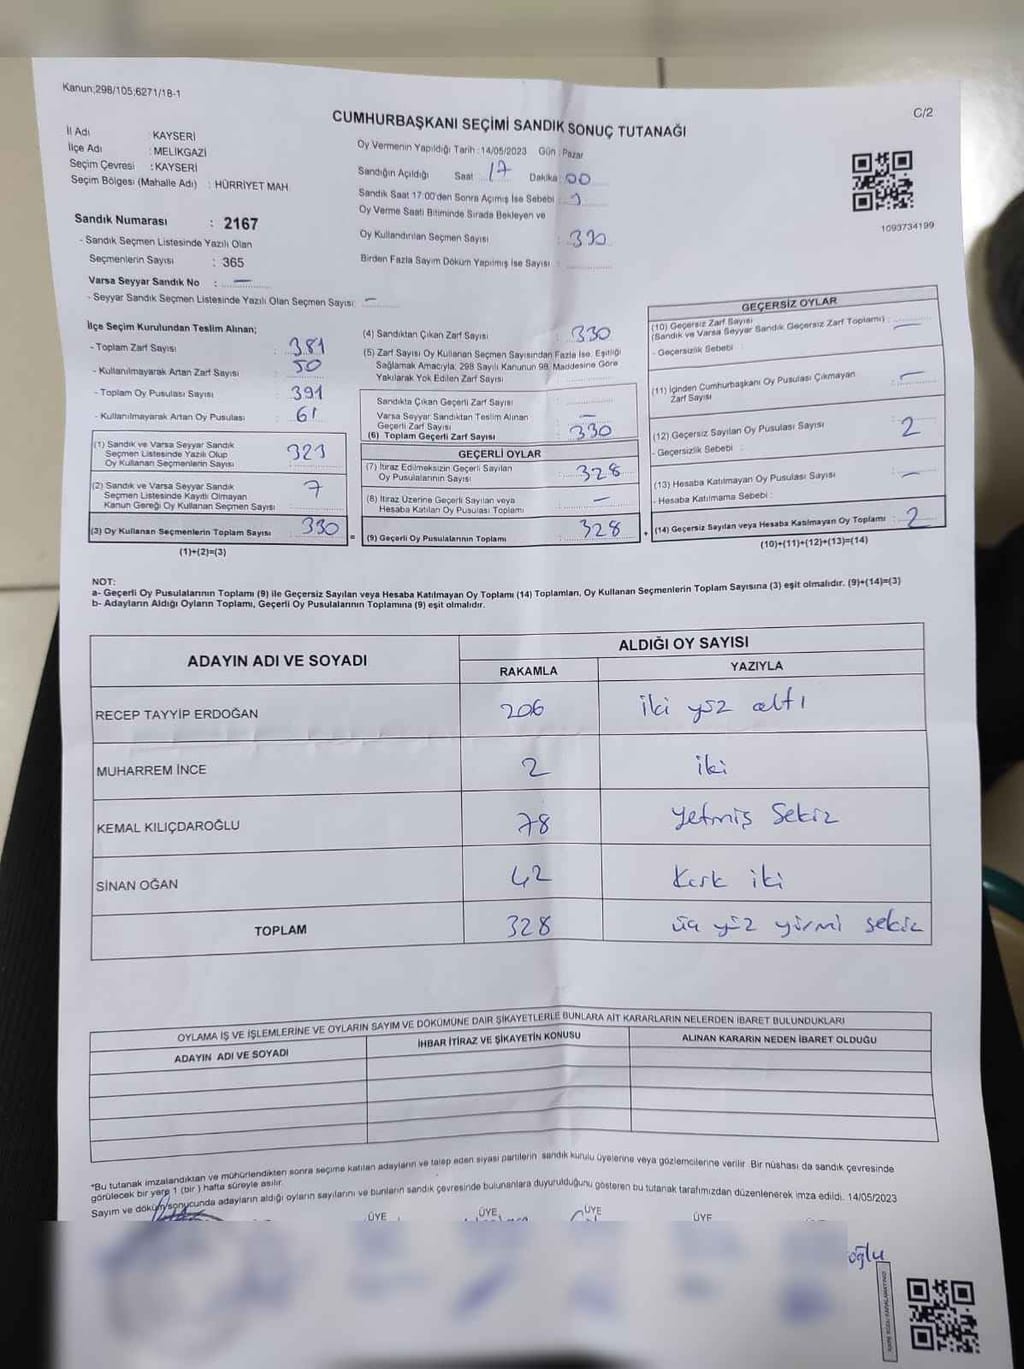 Kanun;298/105;6271/18-1
C/2
CUMHURBAŞKANI SEÇİMİ SANDIK SONUÇ TUTANAĞI
İl Adı : KAYSERİ
İlçe Adı : MELİKGAZİ
Seçim Çevresi : KAYSERİ
Seçim Bölgesi (Mahalle Adı) : HÜRRİYET MAH.
Oy Vermenin Yapıldığı Tarih : 14/05/2023 Gün : Pazar
Sandığın Açıldığı Saat : 17 Dakika : 00
Sandık Saat 17:00'den Sonra Açımış İse Sebebi :
Oy Verme Saati Bitiminde Sırada Bekleyen ve
Oy Kullandırılan Seçmen Sayısı : 330
Birden Fazla Sayım Döküm Yapılmış İse Sayısı :
1093734199
Sandık Numarası : 2167
- Sandık Seçmen Listesinde Yazılı Olan
Seçmenlerin Sayısı : 365
Varsa Seyyar Sandık No : —
- Seyyar Sandık Seçmen Listesinde Yazılı Olan Seçmen Sayısı : —
İlçe Seçim Kurulundan Teslim Alınan;
- Toplam Zarf Sayısı : 381
- Kullanılmayarak Artan Zarf Sayısı : 50
- Toplam Oy Pusulası Sayısı : 391
- Kullanılmayarak Artan Oy Pusulası : 61
(1) Sandık ve Varsa Seyyar Sandık
Seçmen Listesinde Yazılı Olup
Oy Kullanan Seçmenlerin Sayısı : 323
(2) Sandık ve Varsa Seyyar Sandık
Seçmen Listesinde Kayıtlı Olmayan
Kanun Gereği Oy Kullanan Seçmen Sayısı : 7
(3) Oy Kullanan Seçmenlerin Toplam Sayısı : 330
(1)+(2)=(3)
(4) Sandıktan Çıkan Zarf Sayısı : 330
(5) Zarf Sayısı Oy Kullanan Seçmen Sayısından Fazla İse, Eşitliği
Sağlamak Amacıyla; 298 Sayılı Kanunun 98. Maddesine Göre
Yakılarak Yok Edilen Zarf Sayısı :
Sandıkta Çıkan Geçerli Zarf Sayısı :
Varsa Seyyar Sandıktan Teslim Alınan
Geçerli Zarf Sayısı : —
(6) Toplam Geçerli Zarf Sayısı : 330
GEÇERLİ OYLAR
(7) İtiraz Edilmeksizin Geçerli Sayılan
Oy Pusulalarının Sayısı : 328
(8) İtiraz Üzerine Geçerli Sayılan veya
Hesaba Katılan Oy Pusulası Toplamı : —
= (9) Geçerli Oy Pusulalarının Toplamı : 328
GEÇERSİZ OYLAR
(10) Geçersiz Zarf Sayısı
(Sandık ve Varsa Seyyar Sandık Geçersiz Zarf Toplamı) : —
- Geçersizlik Sebebi :
(11) İçinden Cumhurbaşkanı Oy Pusulası Çıkmayan
Zarf Sayısı : —
(12) Geçersiz Sayılan Oy Pusulası Sayısı : 2
- Geçersizlik Sebebi :
(13) Hesaba Katılmayan Oy Pusulası Sayısı : —
- Hesaba Katılmama Sebebi :
+ (14) Geçersiz Sayılan veya Hesaba Katılmayan Oy Toplamı : 2
(10)+(11)+(12)+(13)=(14)
NOT:
a- Geçerli Oy Pusulalarının Toplamı (9) ile Geçersiz Sayılan veya Hesaba Katılmayan Oy Toplamı (14) Toplamları, Oy Kullanan Seçmenlerin Toplam Sayısına (3) eşit olmalıdır. (9)+(14)=(3)
b- Adayların Aldığı Oyların Toplamı, Geçerli Oy Pusulalarının Toplamına (9) eşit olmalıdır.
ADAYIN ADI VE SOYADI
ALDIĞI OY SAYISI
RAKAMLA YAZIYLA
RECEP TAYYİP ERDOĞAN 206 iki yüz altı
MUHARREM İNCE 2 iki
KEMAL KILIÇDAROĞLU 78 Yetmiş Sekiz
SİNAN OĞAN 42 Kırk iki
TOPLAM 328 üç yüz yirmi sekiz
OYLAMA İŞ VE İŞLEMLERİNE VE OYLARIN SAYIM VE DÖKÜMÜNE DAİR ŞİKAYETLERLE BUNLARA AİT KARARLARIN NELERDEN İBARET BULUNDUKLARI
ADAYIN ADI VE SOYADI İHBAR İTİRAZ VE ŞİKAYETİN KONUSU ALINAN KARARIN NEDEN İBARET OLDUĞU
*Bu tutanak imzalandıktan ve mühürlendikten sonra seçime katılan adayların ve talep eden siyasi partilerin sandık kurulu üyelerine veya gözlemcilerine verilir. Bir nüshası da sandık çevresinde
görülecek bir yere 1 (bir) hafta süreyle asılır.
Sayım ve döküm sonucunda adayların aldığı oyların sayılarını ve bunların sandık çevresinde bulunanlara duyurulduğunu gösteren bu tutanak tarafımızdan düzenlenerek imza edildi. 14/05/2023
ÜYE ÜYE ÜYE ÜYE
oğlu